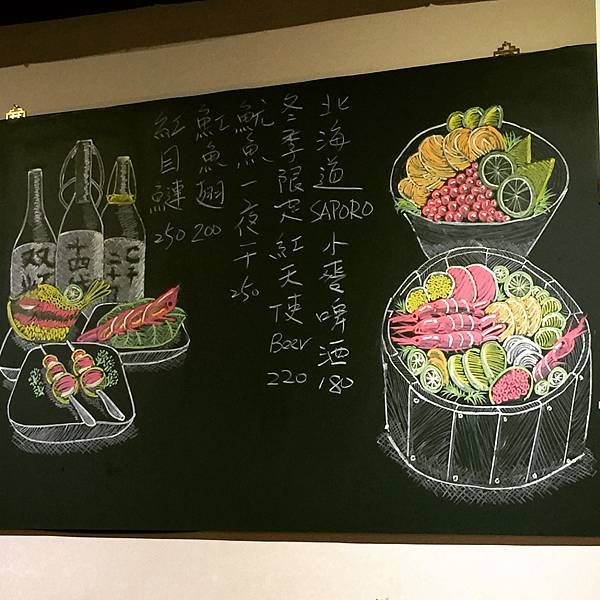 北海道 SAPORO 小麥啤酒 180
冬季限定紅天使 Beer 220
魷魚一夜干 250
魟魚翅 200
紅目鰱 250
双虹
十四代